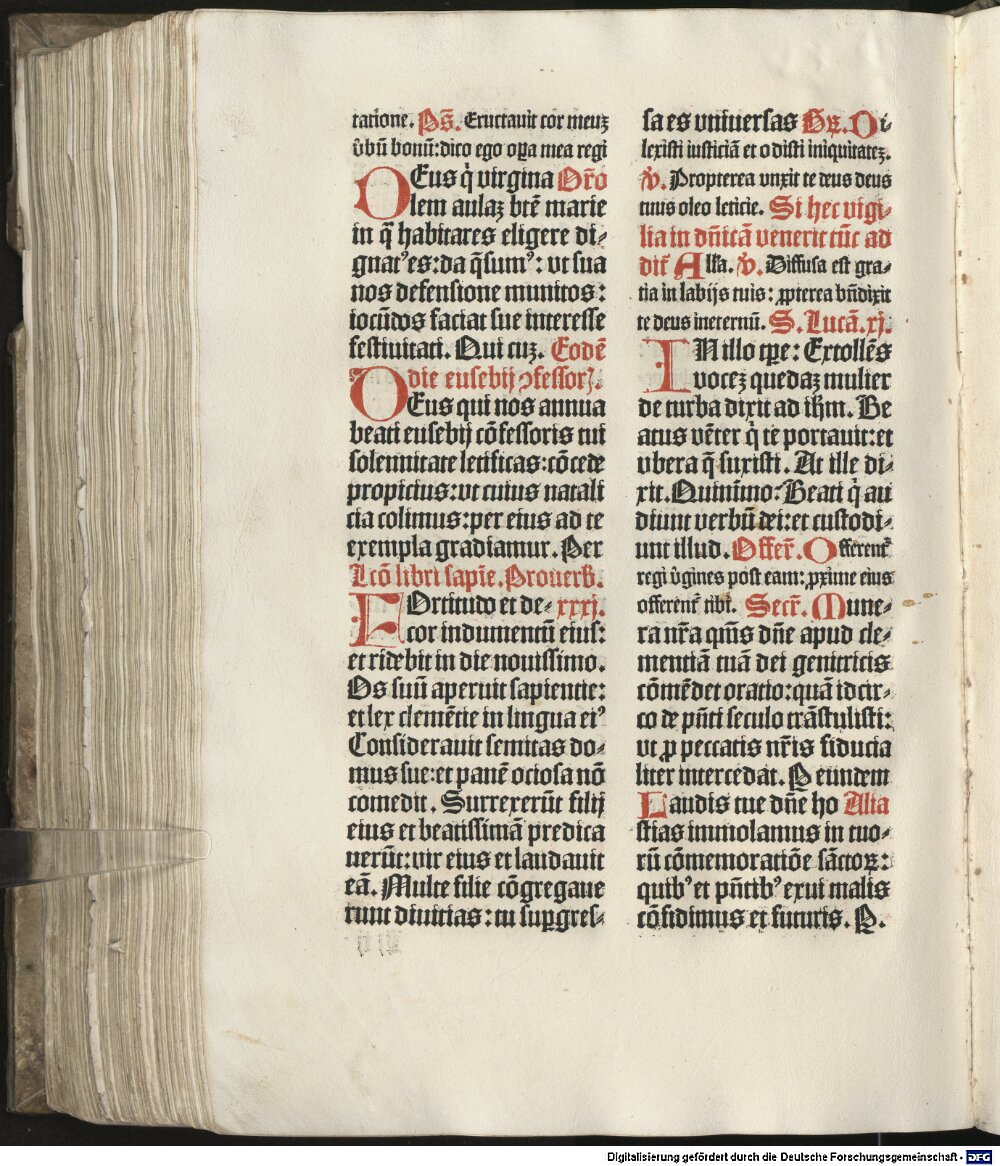 tatiōne. Ps̄. Eructauit cor meuꝫ
v̄bū bonū: dico ego oꝑa mea regi
DEus q̇ virgina Or̄o
lem aulaꝫ btē marie
in q̄ habitares eligere di⸗
gnatꝰ es: da q̄sumꝰ: vt sua
nos defensione munitos:
iocūdos faciat sue interesse
festiuitati. Qui cuꝫ. Eodē
die eusebij ꝯfessorꝭ.
DEus qui nos annua
beati eusebij cōfessoris tui
solennitate letificas: cōcede
propicius: vt cuius natali
cia colimus: per eius ad te
exempla gradiamur. Per
Lcō libri sapīe. Prouerb̄.
FOrtitudo et de⸗ xxxi.
cor indumentū eius:
et ridebit in die nouissimo.
Os suū aperuit sapientie:
et lex clemētie in lingua eiꝰ
Considerauit semitas do⸗
mus sue: et panē ociosa nō
comedit. Surrexerūt filij
eius et beatissimā predica
uerūt: vir eius et laudauit
eā. Multe filie cōgregaue
runt diuitias: tu suꝑgres⸗
sa es vniuersas Gꝛ̄. Di
lexisti iusticiā et odisti iniquitateꝫ.
v̄. Propterea vnxit te deus deus
tuus oleo leticie. Si hec vigi⸗
lia in dn̄icā venerit tūc ad
dit̄ Alla. v̄. Diffusa est gra⸗
tia in labijs tuis: ꝓpterea bn̄dixit
te deus ineternū. S. Lucā. xj.
IN illo tꝑe: Extollēs
voceꝫ quedaꝫ mulier
de turba dixit ad ih̄m. Be
atus vēter q̇ te portauit: et
vbera q̄ suxisti. At ille di⸗
xit. Quinīmo: Beati q̇ au
diunt verbū dei: et custodi⸗
unt illud. Offer̄. Offerent̄
regi v̄gines post eam: ꝓxime eius
offerent̄ tibi. Secr̄. Mune⸗
ra nr̄a qm̄s dn̄e apud cle⸗
mentiā tuā dei genitricis
cōmēdet oratio: quā idcir⸗
co de pn̄ti seculo trāstulisti:
vt ꝓ peccatis nr̄is fiducia
liter intercedat. P eundem
Laudis tue dn̄e ho Alia
stias immolamus in tuo⸗
rū cōmemoratiōe sāctoꝝ:
quibꝰ et pn̄tibꝰ exui malis
cōfidimus et futuris. P.
Digitalisierung gefördert durch die Deutsche Forschungsgemeinschaft - DFG